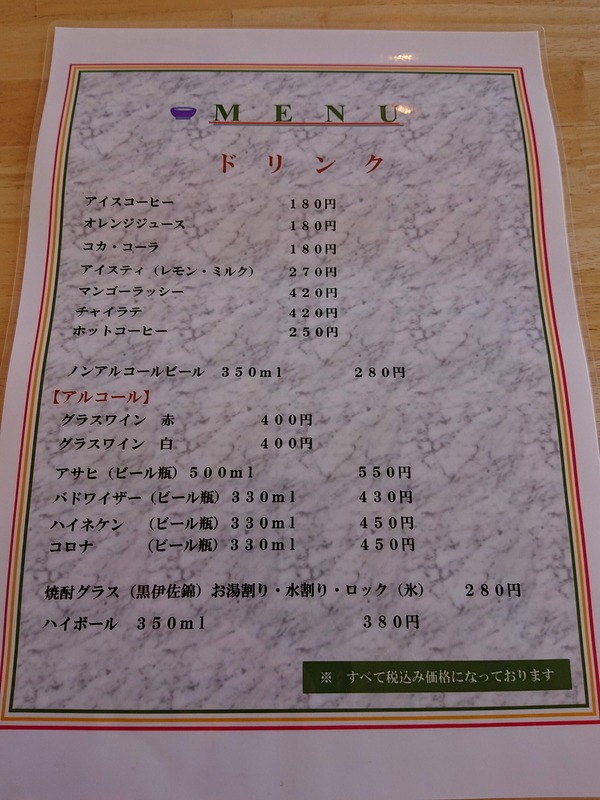 MENU
ドリンク
アイスコーヒー　180円
オレンジジュース　180円
コカ・コーラ　180円
アイスティ（レモン・ミルク）　270円
マンゴーラッシー　420円
チャイラテ　420円
ホットコーヒー　250円
ノンアルコールビール　350ml　280円
【アルコール】
グラスワイン　赤　400円
グラスワイン　白　400円
アサヒ（ビール瓶）500ml　550円
バドワイザー（ビール瓶）330ml　430円
ハイネケン　（ビール瓶）330ml　450円
コロナ　（ビール瓶）330ml　450円
焼酎グラス（黒伊佐錦）お湯割り・水割り・ロック（氷）　280円
ハイボール　350ml　380円
※　すべて税込み価格になっております